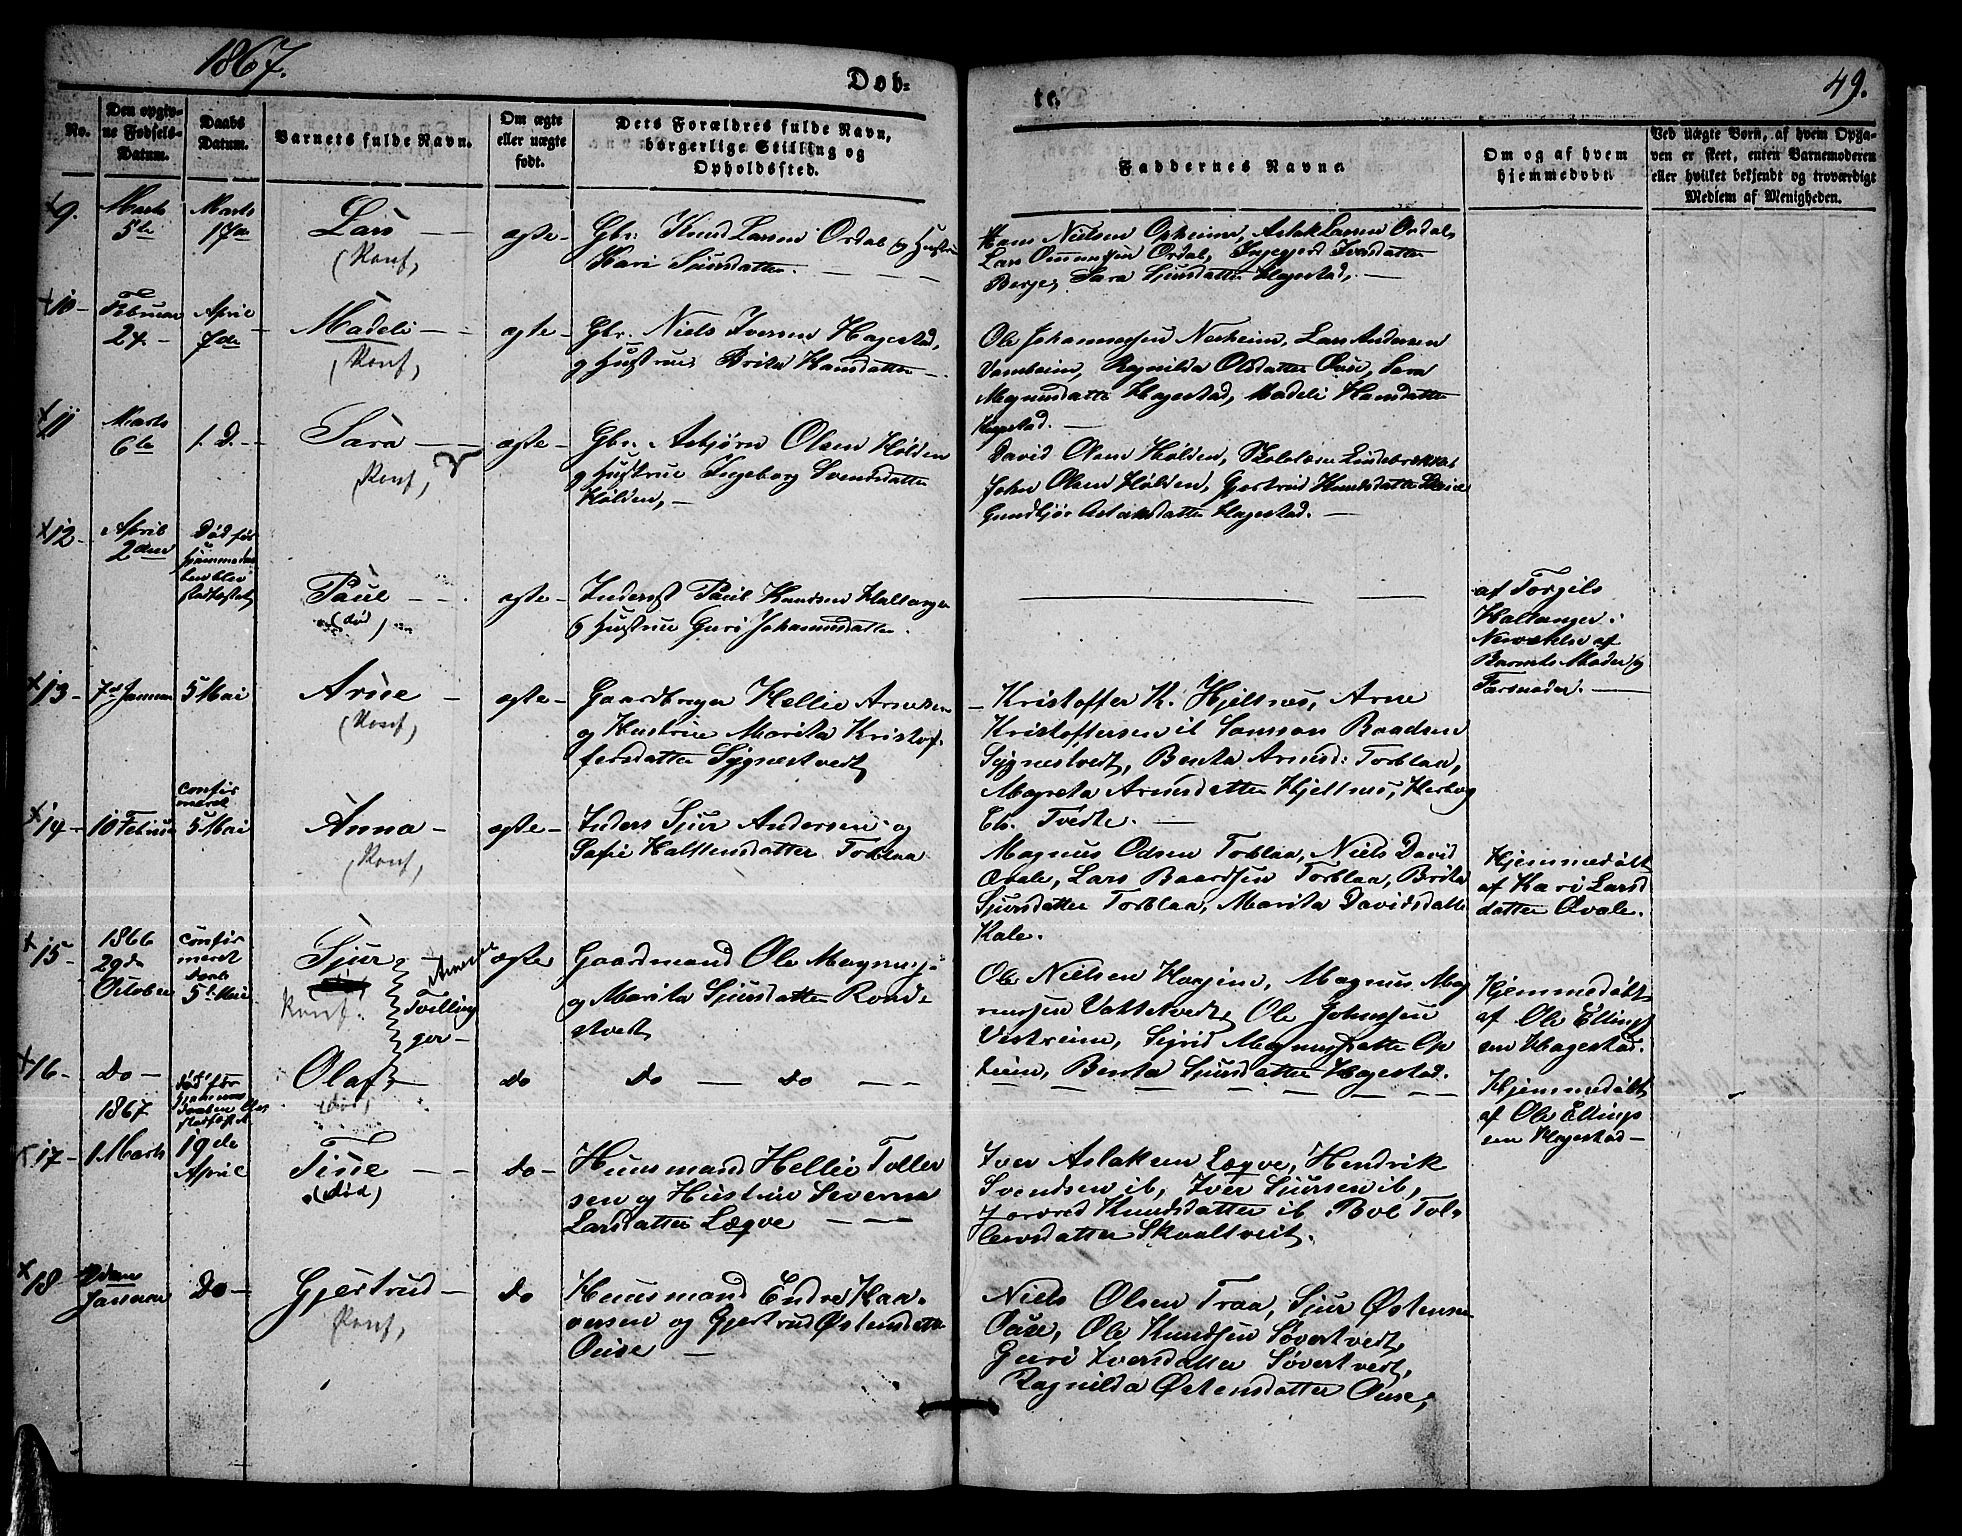 1867.
Døb=
te.
49.
No.
Den opgiv-
ne Fødsels-
Datum.
Daabs
Datum.
Barnets fulde Navn.
Om ægte
eller uægte
født.
Dets Forældres fulde Navn,
borgerlige Stilling og
Opholdssted.
Faddernes Navne.
Om og af hvem
hjemmedøbt.
Ved uægte Børn, af hvem Opga-
ven er skeet, enten Barnemoderen
eller hvilket bekjendt og troværdigt
Medlem af Menigheden.
x 9.
Marts
5te
Marts
17de
Lars
(Konf,
ægte
Gbr. Knud Larsen Ordal og Hustru
Kari Sjursdatter.
Hans Nielsen Opheim, Aslak Larsen Ordal,
Lars Ordal, Ingegjerd Iversdatter
Berge, Sara Sjursdatter Hagestad,
x 10
Februar
24.
April
7de
Madeli
(Konf,
ægte
Gbr. Niels Iversen Hagestad,
og Hustrue Brita Hansdatter
Ole Johannesen Nesheim, Lars Andersen
Vambeim, Ragnilda Olsdatter Ouse, Sara
Magnusdatter Hagestad, Madeli Hansdatter
Hagestad.
x 11
Marts
6te
1. D.
Sara
(Konf,
ægte
Gbr. Asbjørn Olsen Hølden
og Hustrue Ingeborg Svendsdatter
Hølden,
David Olsen Hølden, Skolelærer
John Olsen Hølden, Gjertrud Knudsdatter
Gundbjør Hagestad.
x 12
April
2den
Død før
Hjemmedaa-
ben blev
stadfæstet,
Paul
(død)
ægte
Inderst Paul Knudsen Haltanger
og Hustrue Guri Johannesdatter.
af Torgils
Haltanger i
Nærværelse af
Barnets Moder og
Farmoder.
x 13
7de Januar
5 Mai
Arne
(Konf,
ægte
Gaardbruger Hellie Arnesen
og Hustrue Marita Kristof-
fersdatter Sygnestvedt
Kristoffer K. Hjeltnes, Arne
Kristoffersen ib Samson Baadsen
Sygnestvedt, Benta Arnsd: Torblaa,
Magreta Arnesdatter Hjeltnes, Herborg
Tvedte.
x 14
10 Februar
confir
meret
5 Mai
Anna
(Konf,
ægte
Inders Sjur Andersen og
Sofie Halstensdatter Torblaa
Magnus Odsen Torblaa, Niels David
Øvale, Lars Baardsen Torblaa, Brita
Sjursdatter Torblaa, Marita Davidsdatter
Hjemmedøbt
af Kari Lars
datter Øvale.
x 15
1866
29de
October
confir
meret
Daab
5te Mai
Sjur
Konf.
Tvillin
ger
ægte
Gaardmand Ole Magnus-
og Marita Sjursdatter Rond-
stvedt
Ole Nielsen Haajem, Magnus Mag
nussen Vattetvedt, Ole Johnsen
Vestreim, Sigrid Magnusdatter Op
heim, Benta Sjursdatter Hagestad.
Hjemmedøbt
af Ole Ellings
sen Hagestad.
x 16
Do
Død før
Olaf
(død,
Do
Do Do
Hjemmedøbt
af Ole Ellings
sen Hagestad
x 17
1867
1 Marts
19de
April
Tine
(død)
Do
Huusmand Hellie Toller
sen og Hustrue Severine
Larsdatter Lægve
Iver Aslaksen Lægve, Hendrik
Svendsen ib, Iver Sjursen ib,
Jorøred Knudsdatter ib Bol Tol-
lersdatter Skaaltveit.
x 18
Januar
Do
Gjertrud
Konf,
Do
Huusmand Endre Haa-
vorsen og Gjertrud Østensdatter
Ouse
Niels Olsen Traa, Sjur Østensen
Ouse, Ole Knudsen Søvertvedt,
Guri Iversdatter Søvertvedt,
Ragnilda Østensdatter Ouse,